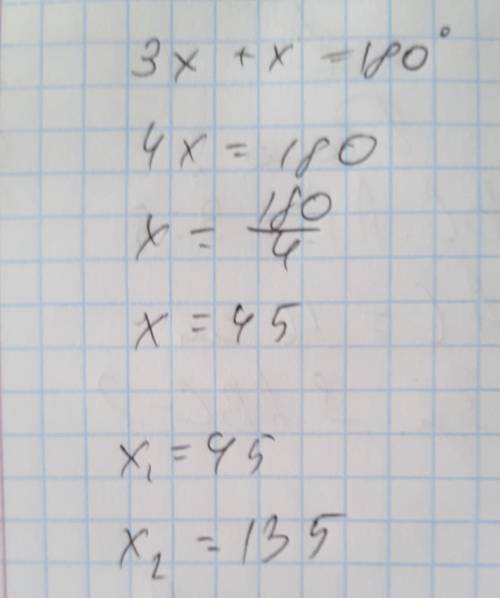 3x + x = 180°
4x = 180
x = 180/4
x = 45
x₁ = 45
x₂ = 135